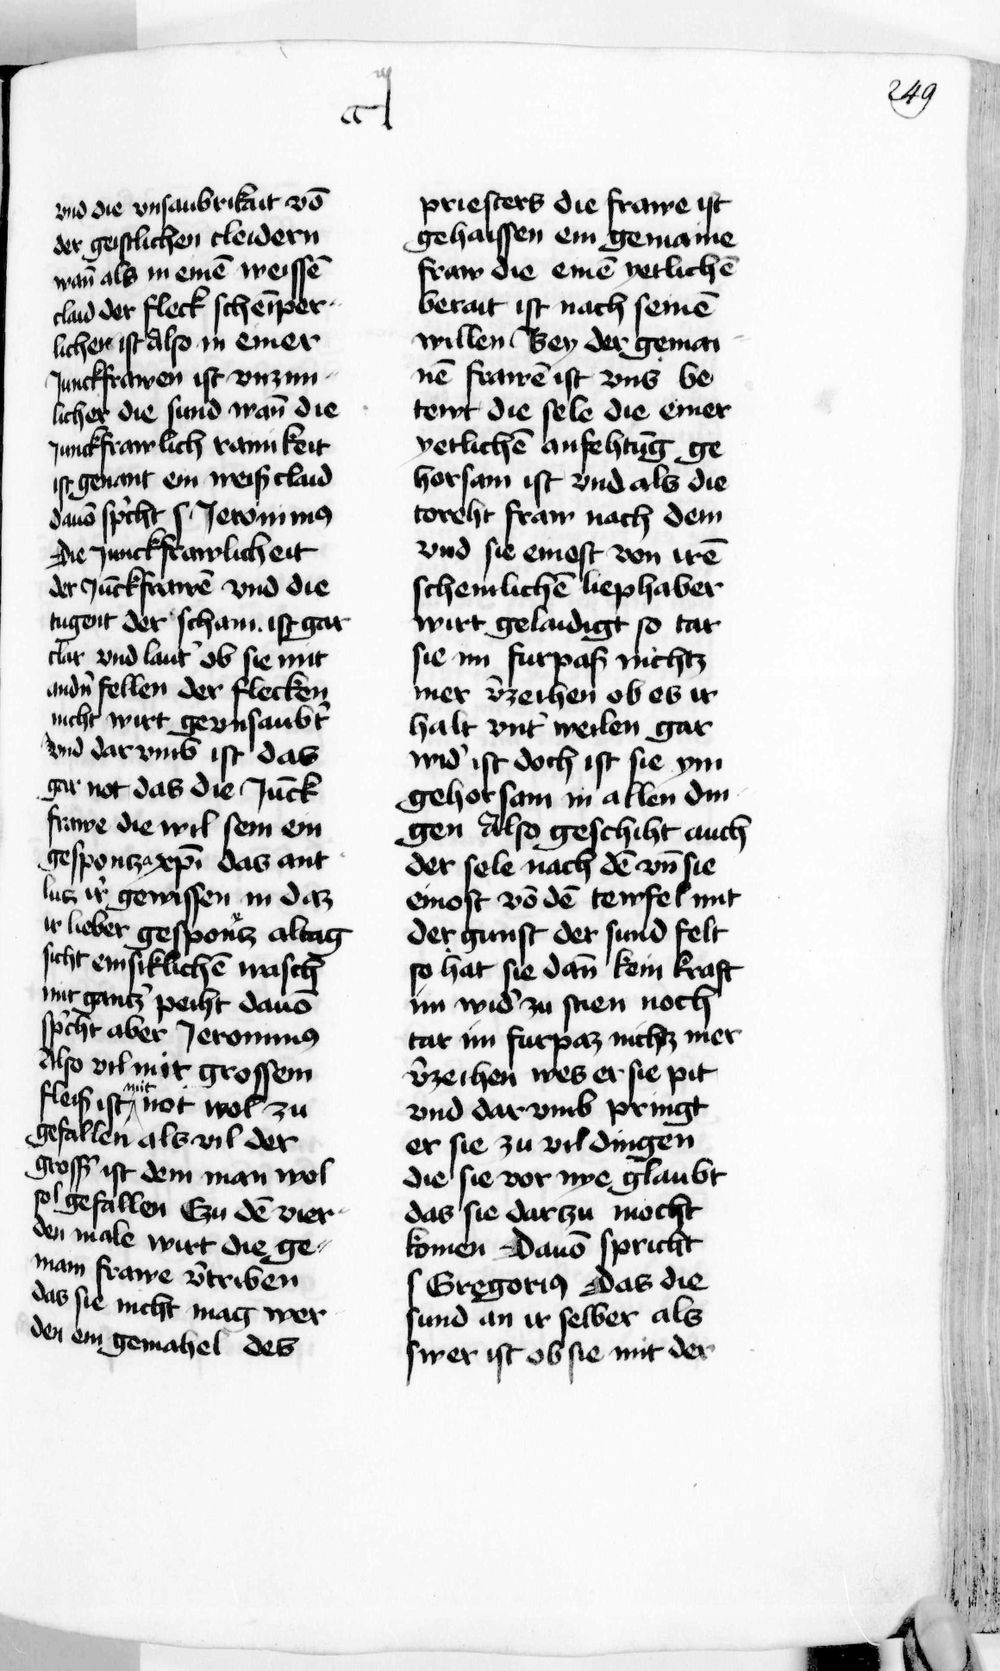 249
vnd die vnsaubrikait vō
der geistlichen cleidern
wañ als in einē weissē
claid der fleck scheīper
lichen ist Also in einer
Junckfrawen ist vnzim
licher die sund wañ die
Junckfrawlich rainikeit
ist genant ein weiß claid
dauō spͥcht s Jeronimꝰ
Die Junckfrawlicheit
der Jūckfrawē vnd die
tugent der scham ist gar
clar vnd laut͛ ob sie mit
andn͛ fellen der flecken
nicht wirt gevnsaubt͛
vnd dar vmb ist das
gar not das die Jūck
frawe die wil sein ein
gespontz xp̄i das ant
lutz ir͛ gewissen in daz
ir lieber gespontz altag
sicht emsiklichē wasch
mit gantz͛ peiht dauō
spͥcht aber Jeronimꝰ
Also vil mit grossem
fleiß ist mit not wol zu
gefallen als vil der
gross͛ ist dem man wol
sol gefallen Czu dē vier
den male wirt die ge
main frawe v͛triben
das sie nicht mag wer
den ein gemahel des
priesters die frawe ist
gehaissen ein gemaine
fraw die einē yetlichē
berait ist nach seinē
willen Bey der gemai
nē frawē ist vns be
tewt die sele die einer
yetlichē anfehtūg ge
horsam ist vnd als die
toreht fraw nach dem
vnd sie einest von irē
schemlichē liephaber
wirt gelaidigt so tar
sie im furpaß nichtz
mer v͛zeihen ob es ir
halt vnt͛ weilen gar
wid͛ ist doch ist sie ym
gehorsam in allen din
gen Also geschiht auch
der sele nach dē vn̄ sie
einost vō dē tewfel mit
der gunst der sund felt
so hat sie dañ kein kraft
im wid͛ zu stien noch
tar im furpaz nichtz mer
v͛zeihen wes er sie pit
vnd dar vmb pringt
er sie zu vil dingen
die sie vor nye glaubt
das sie darzu mocht
komen Dauō spricht
s Gregoriꝰ Das die
sund an ir selber als
swer ist ob sie mit der